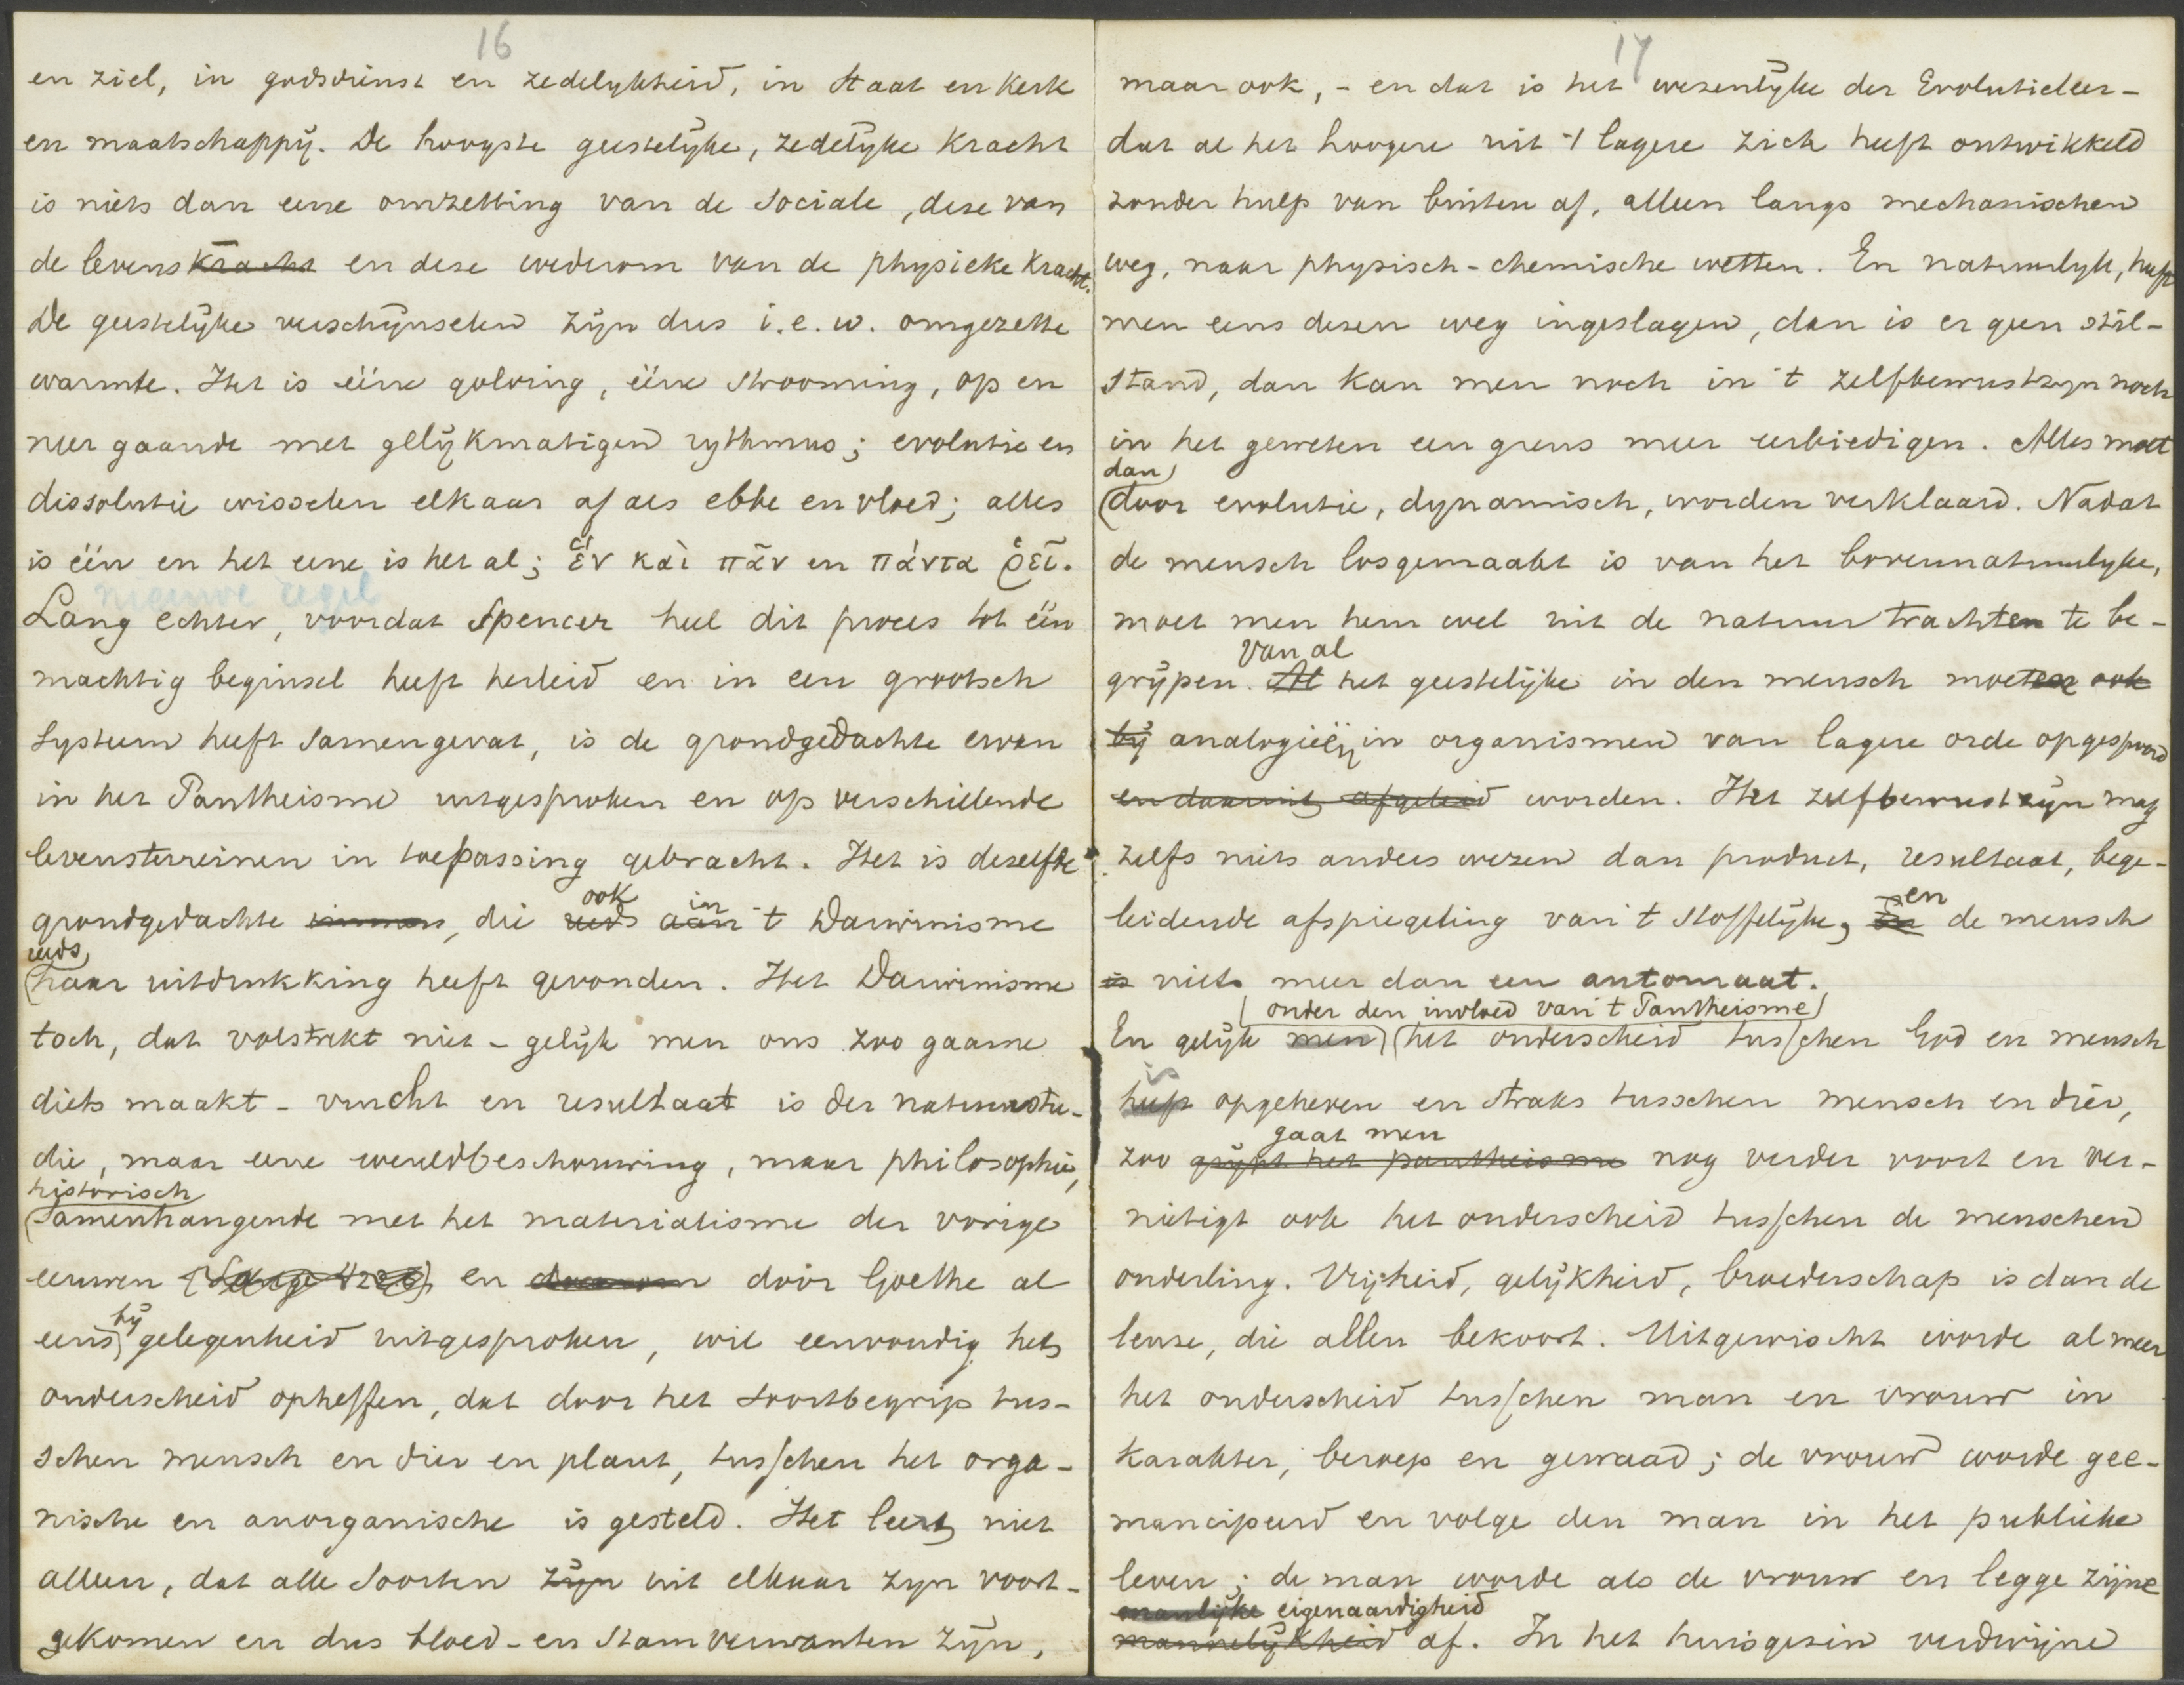 16
en ziel, in godsdienst en zedelykheid, in Staat en Kerk
en maatschappÿ. De hoogste geestelÿke, zedelÿke Kracht
is niets dan eene omzetting van de Sociale, deze van
de levenskracht en deze wederom van de physieke Kracht.
De geestelÿke verschÿnselen zÿn dus i.e.w. omgezette
warmte. Het is ééne golving, ééne strooming, op en
neer gaande met gelÿkmatigen rythmus; evolutie en
dissolutie wisselen elkaar af als ebbe en vloed; alles
is één en het eene is het al; ἕν καὶ πᾶν en πάντα ῥεῖ.
nieuwe regel
Lang echter, voordat Spencer heel dit proces tot één
machtig beginsel heeft herleid en in een grootsch
Systeem heeft Samengevat, is de grondgedachte ervan
in het Pantheisme uitgesproken en op verschillende
levensterreinen in toepassing gebracht. Het is dezelfde
ook in
grondgedachte, die reeds aan 't Darwinisme
reeds
haar uitdrukking heeft gevonden. Het Darwinisme
toch, dat volstrekt niet - gelÿk men ons zoo gaarne
diets maakt - vrucht en resultaat is der natuurstu-
die, maar eene wereldbeschouwing, maar philosophie,
historisch
Samenhangende met het materialisme der vorige
eeuwen en daarom door Goethe al
bÿ
eens gelegenheid uitgesproken, wil eenvoudig het
onderscheid opheffen, dat door het Soortbegrip tus-
schen mensch en dier en plant, tusschen het orga-
nische en anorganische is gesteld. Het leert niet
alleen, dat alle Soorten zÿn uit elkaar zyn voort-
gekomen en dus bloed- en Stamverwanten zÿn,
17
maar ook, - en dat is het wezenlÿke der Evolutieleer -
dat al het hoogere uit 't lagere zich heeft ontwikkeld
zonder hulp van buiten af, alleen langs mechanischen
weg, naar physisch-chemische wetten. En natuurlyk, heeft
men eens dezen weg ingeslagen, dan is er geen stil-
stand, dan kan men noch in 't zelfbewustzyn noch
in het geweten een grens meer eerbiedigen. Alles moet
dan
door evolutie, dynamisch, worden verklaard. Nadat
de mensch losgemaakt is van het bovennatuurlyke,
moet men hem wel uit de natuur trachten te be-
van al
grÿpen. Al het geestelÿke in den mensch moeten ook
bÿ analogieën in organismen van lagere orde opgespoord
en daaruit afgeleid worden. Het zelfbewustzÿn mag
zelfs niets anders wezen dan product, resultaat, bege-
en
leidende afspiegeling van 't Stoffelÿke, de mensch
is niets meer dan een automaat.
onder den invloed van 't Pantheisme
En gelÿk men het onderscheid tusschen God en mensch
is
heeft opgeheven en straks tusschen mensch en dier,
gaat men
zoo grÿpt het pantheisme nog verder voort en ver-
nietigt ook het onderscheid tusschen de menschen
onderling. Vrÿheid, gelÿkheid, broederschap is dan de
leuze, die allen bekoort. Uitgewischt worde al meer
het onderscheid tusschen man en vrouw in
Karakter, beroep en gewaad; de vrouw worde gee-
mancipeerd en volge den man in het publieke
leven; de man worde als de vrouw en legge zÿne
manlÿke eigenaardigheid
mannelÿkheid af. In het huisgezin verdwÿne